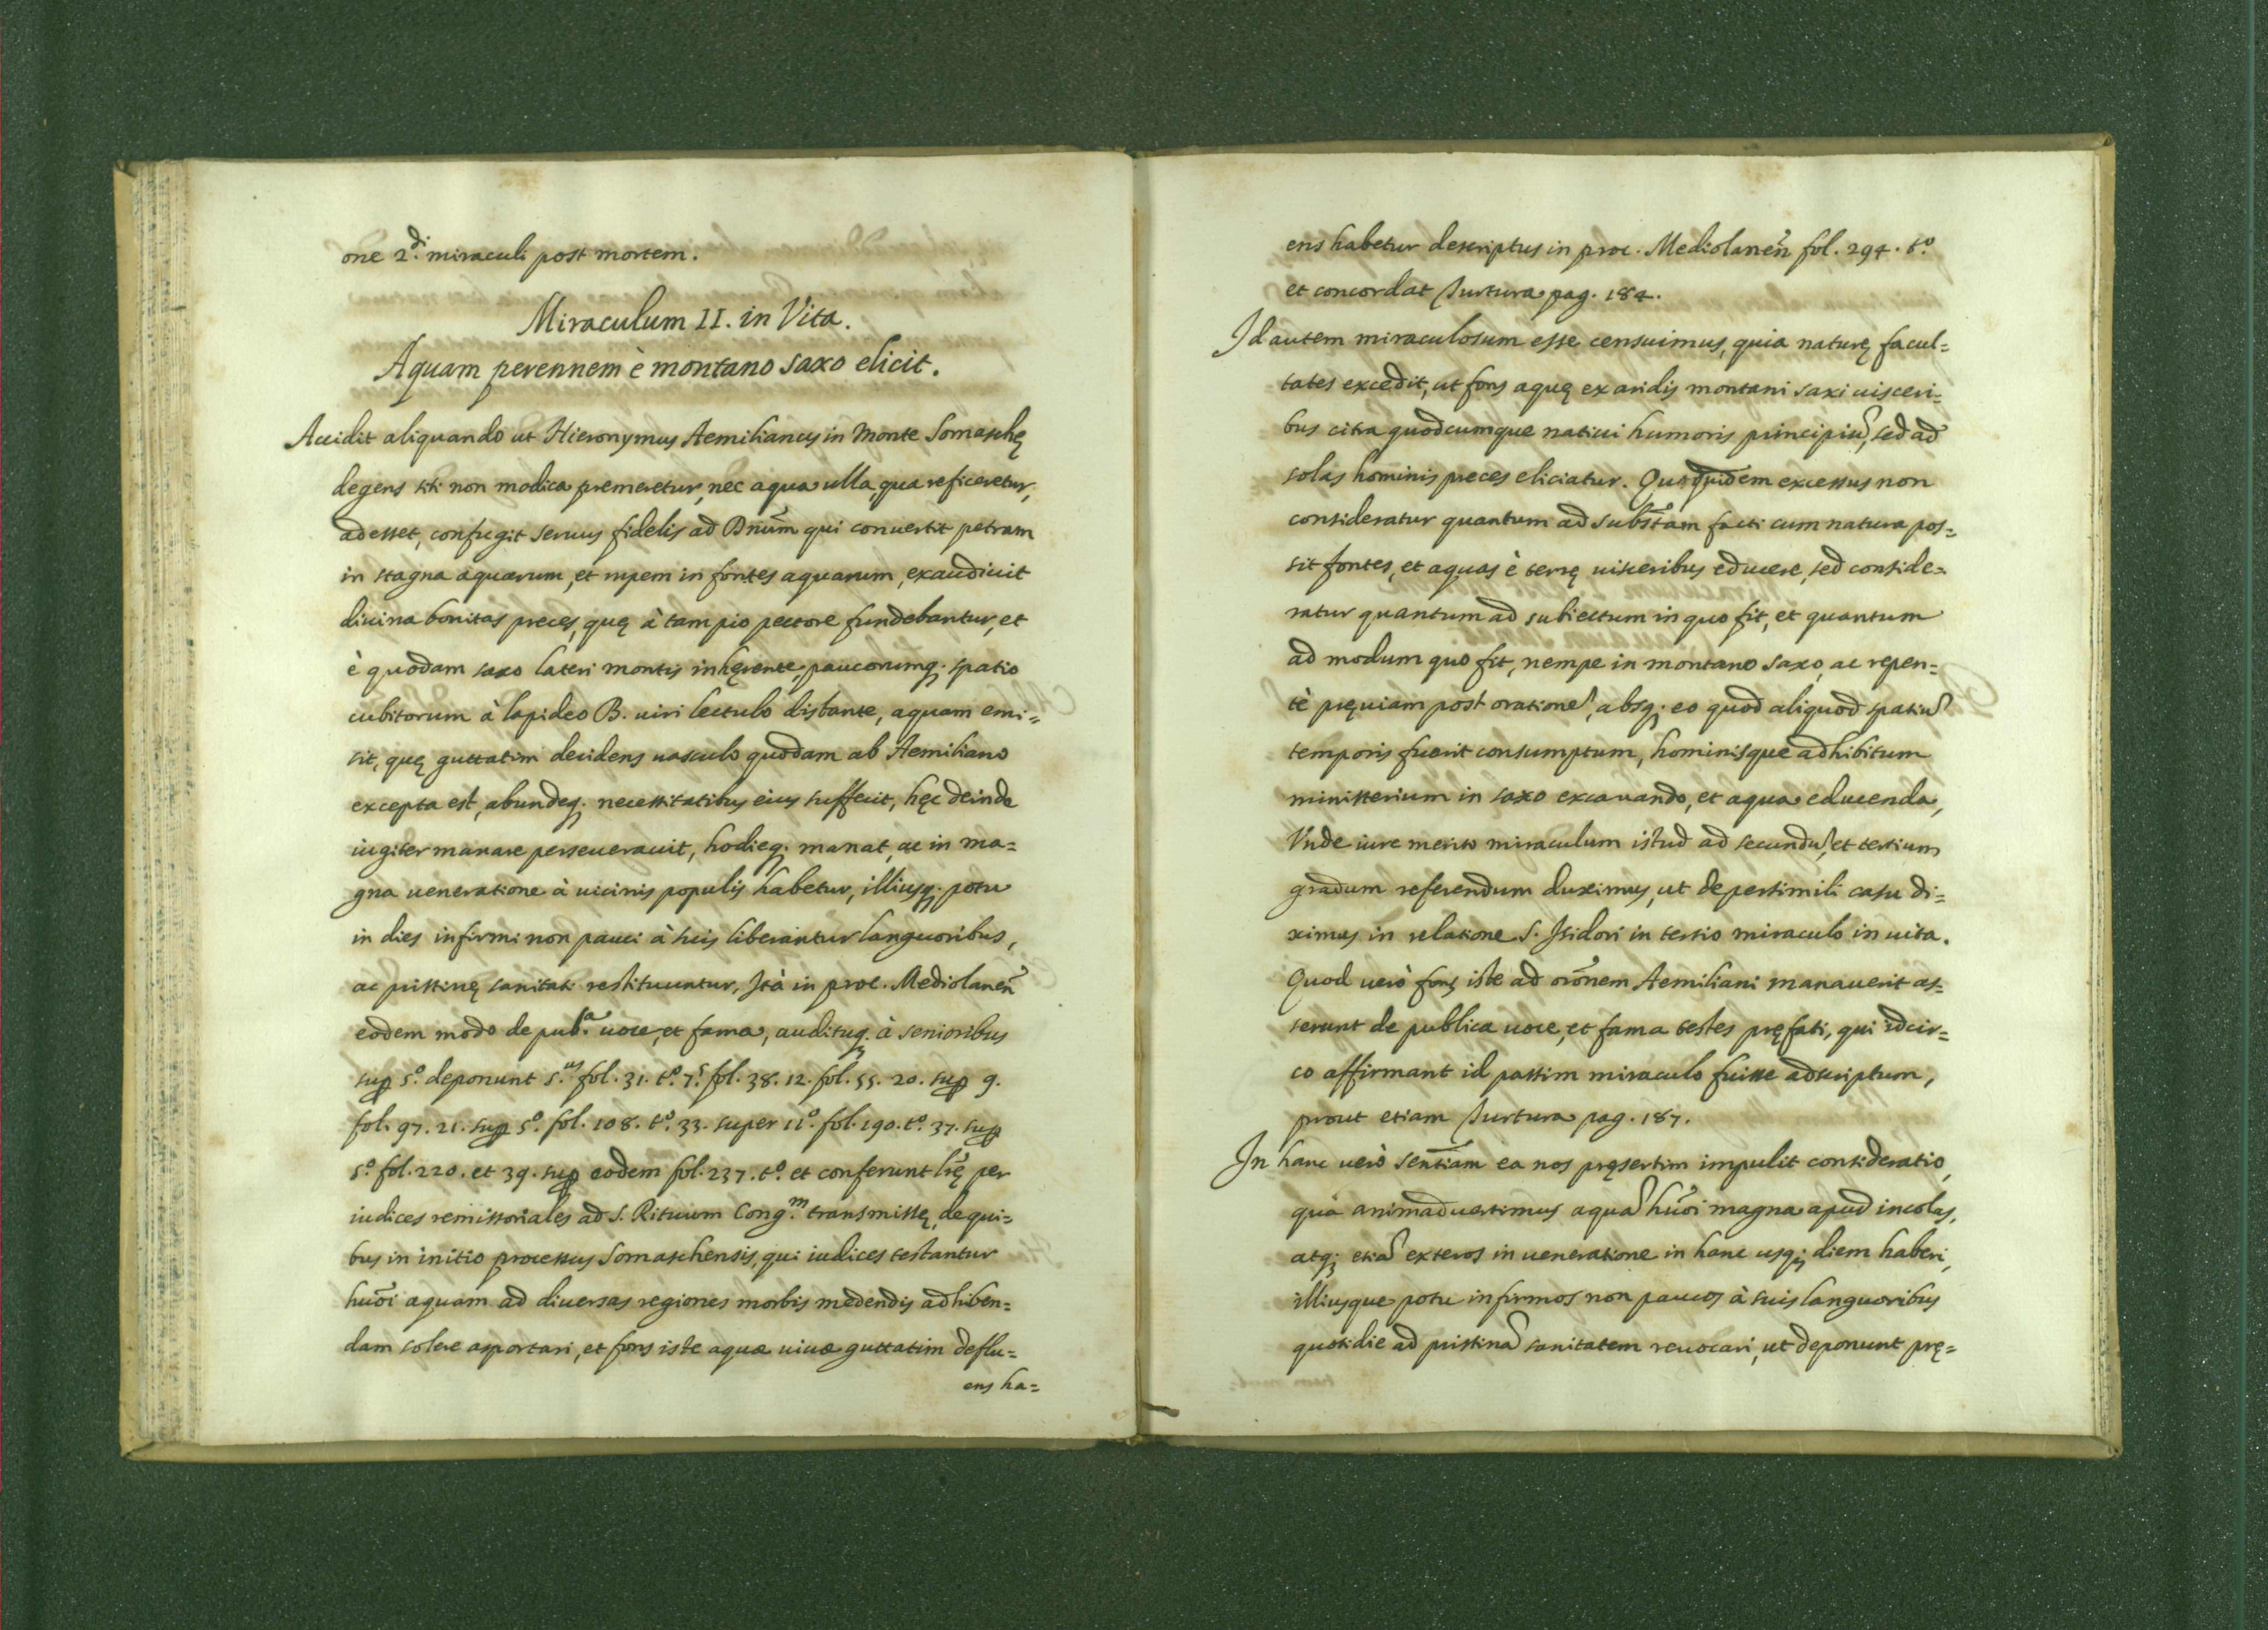 one 2.di miraculi post mortem.
Miraculum II. in Vita.
Aquam perennem è montano saxo elicit.
Accidit aliquando ut Hieronymus Aemilianus in Monte Somaschę
degens siti non modica premeretur, nec aqua ulla, qua reficeretur,
adesset, confugit seruus fidelis ad Dnum̃ qui conuertit petram
in stagna aquarum, et rupem in fontes aquarum, exaudiuit
diuina bonitas preces, quę à tam pio pectore fundebantur, et
è quodam saxo lateri montis inhęrente, paucorumq. spatio
cubitorum à lapideo B. uiri lectulo distante, aquam emi=
sit, quę guttatim decidens uasculo quodam ab Aemiliano
excepta est, abundeq. necessitatibus eius suffecit, hęc deinde
iugiter manare perseuerauit, hodieq. manat, ac in ma=
gna ueneratione à uicinis populis habetur, illiusq. potu
in dies infirmi non pauci à suis liberantur languoribus,
ac pristinę sanitati restituuntur, Ità in proc. Mediolanen̄
eodem modo de pub.a uoce, et fama, audituq. à senioribus
sup 5.o deponunt 5.us fol. 31. t.o 7.s fol. 38. 12. fol. 55. 20. sup 9.
fol. 97. 21. sup 5.o fol. 108. t.o 33. super 11.o fol. 190. t.o 37. sup
5.o fol. 220. et 39. sup eodem fol. 237. t.o et conferunt lr̃ę per
iudices remissoriales ad S. Rituum Cong.m transmissę, de qui=
bus in initio processus Somaschensis, qui iudices testantur
huõi aquam ad diuersas regiones morbis medendis adhiben=
dam solere asportari, et fons iste aquæ uiuæ guttatim deflu=
ens ha=
ens habetur descriptus in proc. Mediolanen̄ fol. 294. t.o
et concordat Turtura pag. 184.
Id autem miraculosum esse censuimus, quia naturę facul=
tates excedit, ut fons aquę ex aridis montani saxi uisceri=
bus citra quodcumque natiui humoris principiũ, sed ad
solas hominis preces eliciatur. Qui quidem excessus non
consideratur quantum ad subst̃am facti cum natura pos=
sit fontes, et aquas è terrę uisceribus educere, sed conside=
ratur quantum ad subiectum in quo fit, et quantum
ad modum quo fit, nempe in montano saxo, ac repen=
tè pręuiam post orationẽ, absq. eo quod aliquod spatiũ
temporis fuerit consumptum, hominisque adhibitum
ministerium in saxo excauando, et aqua educenda,
Vnde iure merito miraculum istud ad secundũ, et tertium
gradum referendum duximus, ut de persimili casu di=
ximus in relatione S. Isidori in tertio miraculo in uita.
Quod uerò fons iste ad orõnem Aemiliani manauerit as=
serunt de publica uoce, et fama testes pręfati, qui idcir=
co affirmant id passim miraculo fuisse adscriptum,
prout etiam Turtura pag. 187.
In hanc uerò sentĩam ea nos pręsertim impulit consideratio,
quà animaduertimus aquã huõi magna apud incolas,
atq; etiã exteros in ueneratione in hanc usq; diem haberi,
illiusque potu infirmos non paucos à suis languoribus
quotidie ad pristinã sanitatem reuocari, ut deponunt prę=